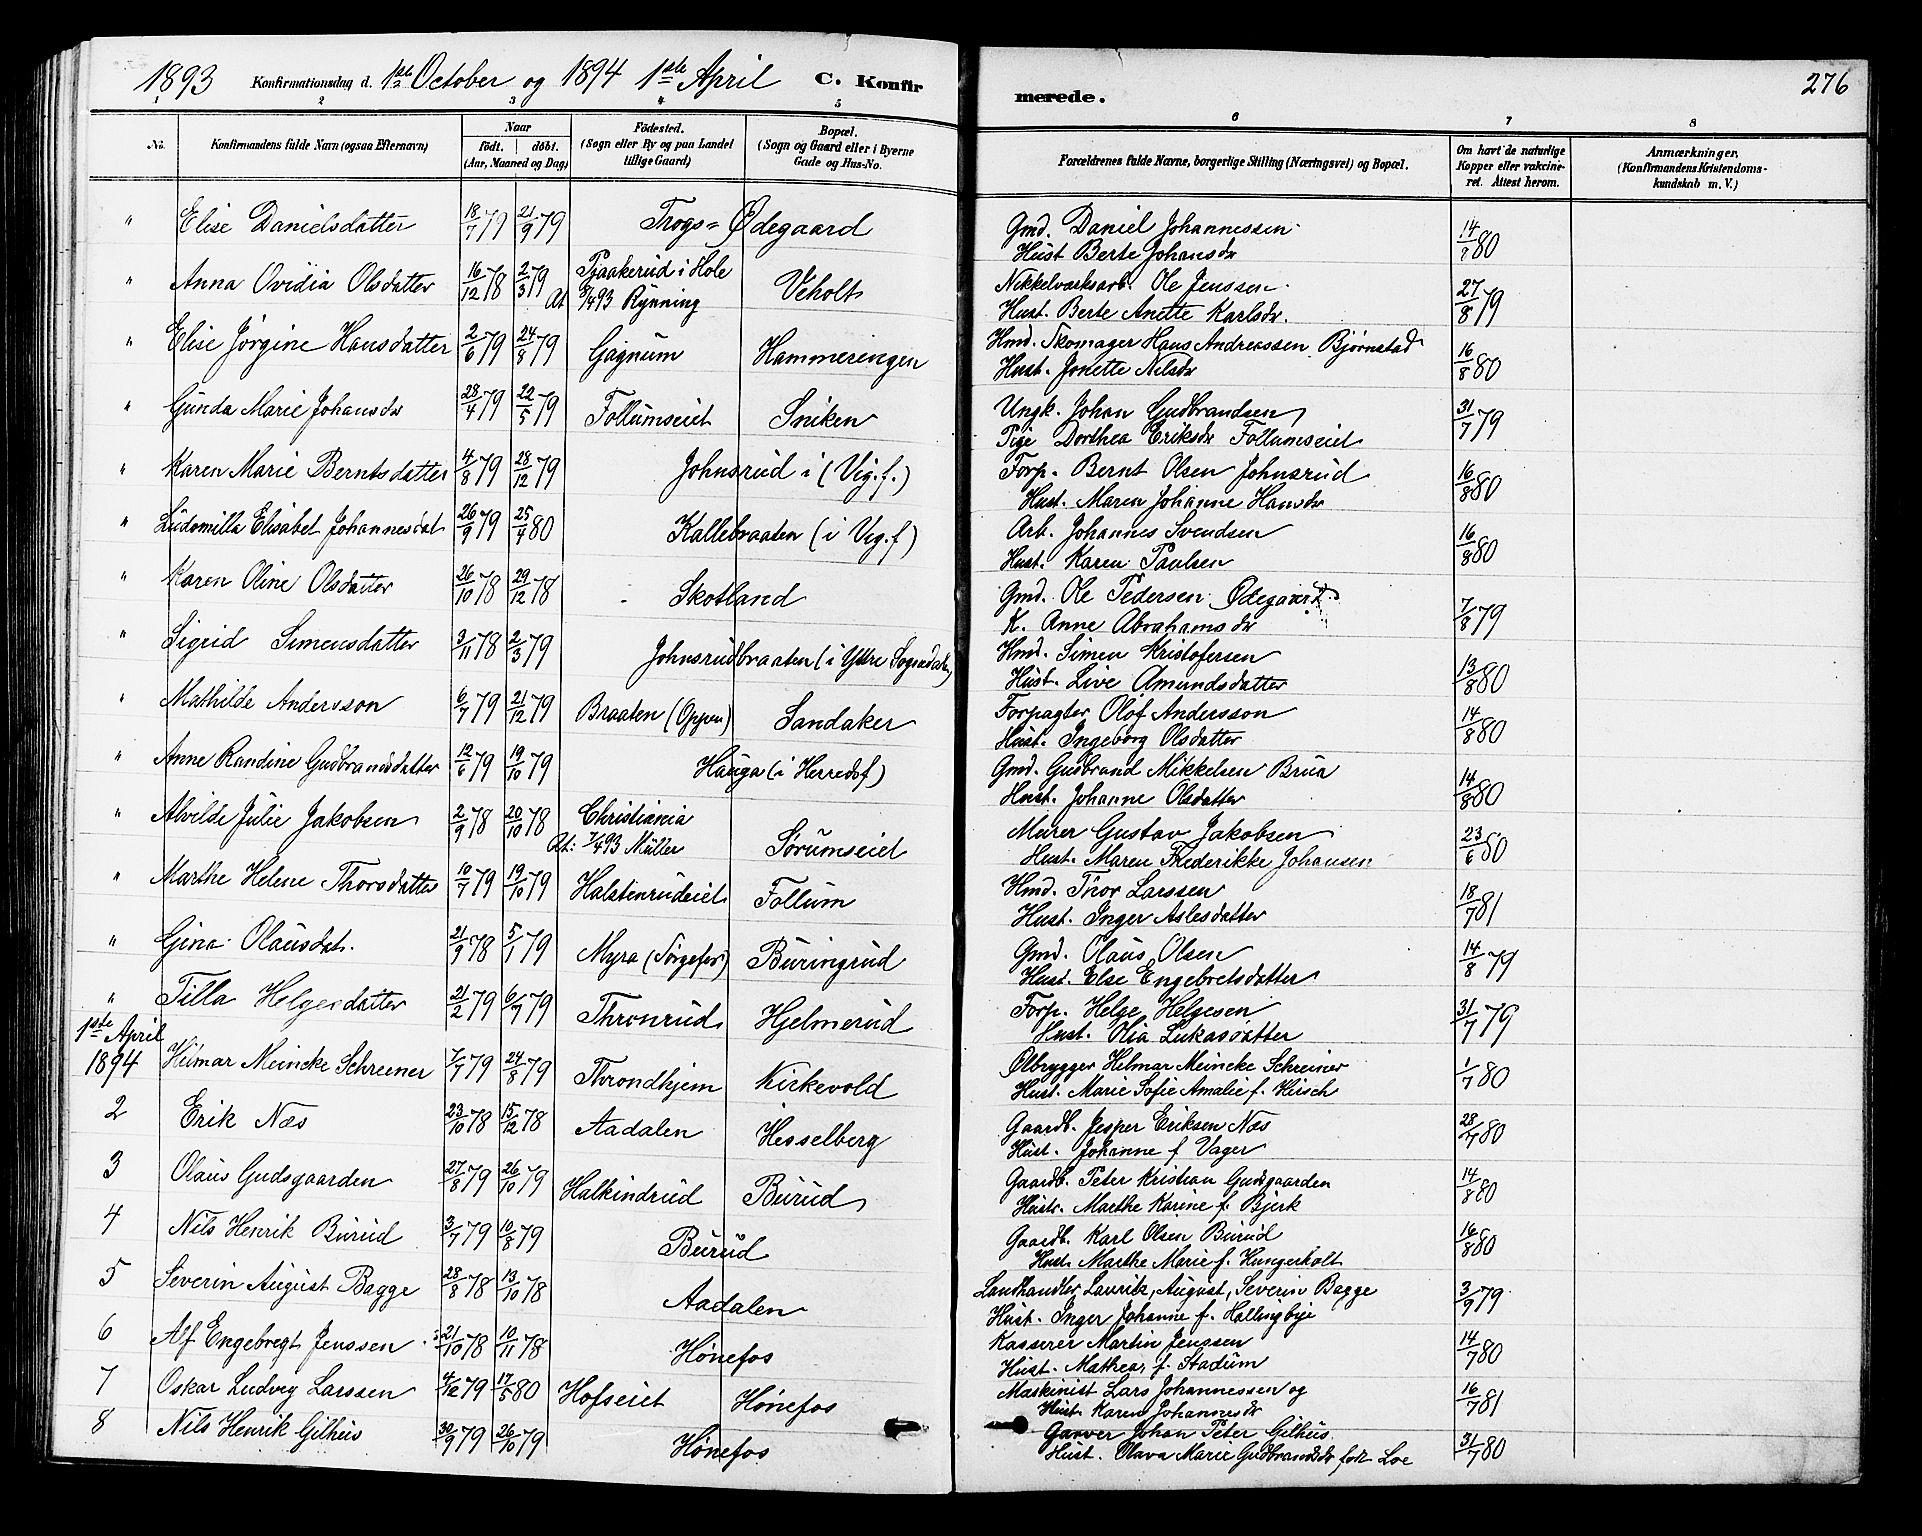 1893 Konfirmationsdag d. 1ste October og 1894 1ste April C. Konfirmerede. 276
1 2 3 4 5 6 7 8
No. Konfirmandens fulde Navn (ogsaa Efternavn) Naar födt. döbt. (Aar, Maaned og Dag) Födested. (Sogn eller By og paa Landet tillige Gaard) Bopæl. (Sogn og Gaard eller i Byerne Gade og Hus-No. Forældrenes fulde Navne, borgerlige Stilling (Næringsvei) og Bopæl. Om havt de naturlige Kopper eller vakcineret. Attest herom. Anmærkninger. (Konfirmandens Kristendomskundskab m. V.)
" Elise Danielsdatter 18/7 79 21/9 79 Trogs=Ødegaard Gmd. Daniel Johannessen 14/9 80
Hust Berte Johansdr
" Anna Ovidia Olsdatter 16/12 78 2/3 79 Tjaakerud i Hole Veholt Nikkelværksarb. Ole Jenssen 27/8 79
At 8/4 93 Rynning Hust. Berte Anette Karlsdr.
" Elise Jørgine Hansdatter 2/6 79 24/8 79 Gagnum Hammeringen Hmd. Skomager Hans Andreassen Bjørnstad 16/8 80
Hust. Jonette Nilsdr
" Gunda Marie Johansdr 28/4 79 22/5 79 Follumseiet Sniken Ungk. Johan Gudbrandsen 31/7 79
Pige Dorthea Eriksdr Follumseiet
" Karen Marie Berntsdatter 4/8 79 28/12 79 Johnsrud i (Vig.f.) Forp. Bernt Olsen Johnsrud 16/8 80
Hust. Maren Johanne Hansdr
" Ludomilla Elisabet Johannesdat 26/9 79 25/4 80 Kallebraaten (i Vig.f) Arb. Johannes Svendsen 16/8 80
Hust. Karen Paulsen
" Karen Oline Olsdatter 26/10 78 29/12 78 Skotland Gmd. Ole Pedersen Ødegaard 7/8 79
K. Anne Abrahamsdr
" Sigrid Simensdatter 3/11 78 2/3 79 Johnsrudbraaten (i Yttre Sognedalen) Hmd. Simen Kristofersen 13/8 80
Hust. Live Amundsdatter
" Mathilde Andersson 6/7 79 21/12 79 Braaten (Oppen) Sandaker Forpagter Olof Andersson 14/8 80
Hust. Ingeborg Olsdatter
" Anne Randine Gudbrandsdatter 12/6 79 19/10 79 Hauga (i Herredsf) Gmd. Gudbrand Mikkelsen Brua 14/8 80
Hust. Johanne Olsdatter
" Alvilde Julie Jakobsen 2/9 78 20/10 78 Christiania Sørumseiet Murer Gustav Jakobsen 23/6 80
At: 7/4 93 Müller Hust. Maren Frederikke Johansen
" Marthe Helene Thorsdatter 10/7 79 19/10 79 Halstenrudeiet Follum Hmd. Thor Larssen 18/7 81
Hust. Inger Aslesdatter
" Gina Olausdat. 21/9 78 5/1 79 Myra (Sørgefos) Buringrud Gmd. Olaus Olsen 14/8 79
Hust. Else Engebretsdatter
" Tilla Helgesdatter 21/2 79 6/7 79 Thronrud Hjelmerud Forp. Helge Helgesen 31/7 79
1ste April Hust. Olia Lukasdatter
1894 Hilmar Meincke Schreener 7/7 79 24/8 79 Throndhjem Kirkevold Ølbrygger Helmar Meincke Schreiner 1/7 80
Hust. Marie Sofie Amalie f. Hirsch
2 Erik Næs 23/10 78 15/12 78 Aadalen Hesselberg Gaardb. Jesper Eriksen Næs 28/7 80
Hust. Johanne f Vager
3 Olaus Gudsgaarden 27/8 79 26/10 79 Halkindrud Burud Gaardb. Peter Kristian Gudsgaarden 14/8 80
Hustr. Marthe Karine f. Bjerk
4 Nils Henrik Burud 3/7 79 10/8 79 Burud Gaardb. Karl Olsen Burud 16/8 80
Hust. Marthe Marie f. Hungerholt
5 Severin August Bagge 28/8 78 13/10 78 Aadalen Landhandler Laurik, August, Severin Bagge 3/9 79
Hust. Inger Johanne f. Hallingbye
6 Alf Engebregt Jenssen 21/10 78 10/11 78 Hønefos Kasserer Martin Jenssen 14/7 80
Hust. Mathea f. Stadum
7 Oskar Ludvig Larssen 4/12 79 17/5 80 Hofseiet Hønefos Maskinist Lars Johannessen og 16/7 81
Hust. Karen Johannesdr
8 Nils Henrik Gilhus 30/9 79 26/10 79 Hønefos Garver Johan Peter Gilhus 31/7 80
Hust. Olava Marie Gudbrandsdr født Loe